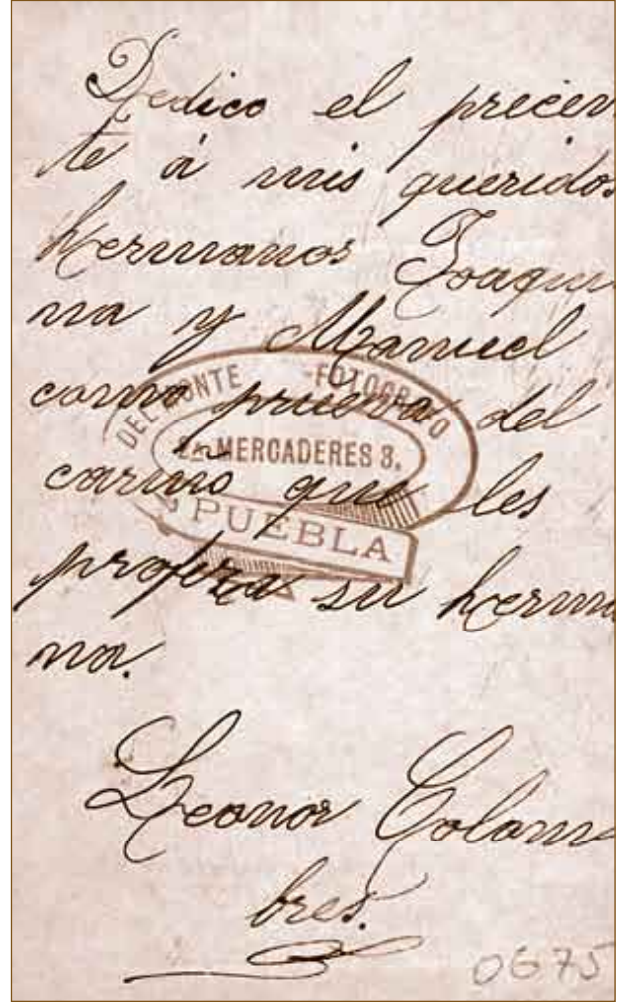 Dedico el precen
te á mis queridos
hermanos Joaqui
na y Manuel
como prueva del
cariño que les
profeza su herma
na.
Leonor Colom
bres.
DEL MONTE -FOTOGRAFO
2a. MERCADERES 3.
PUEBLA
0675